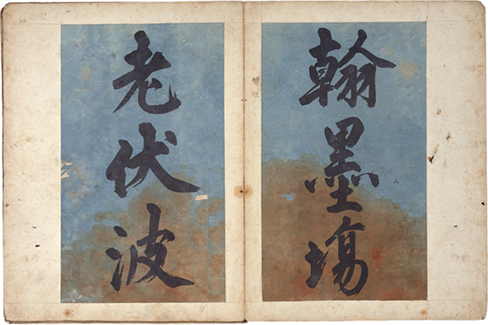 翰墨場
老伏波